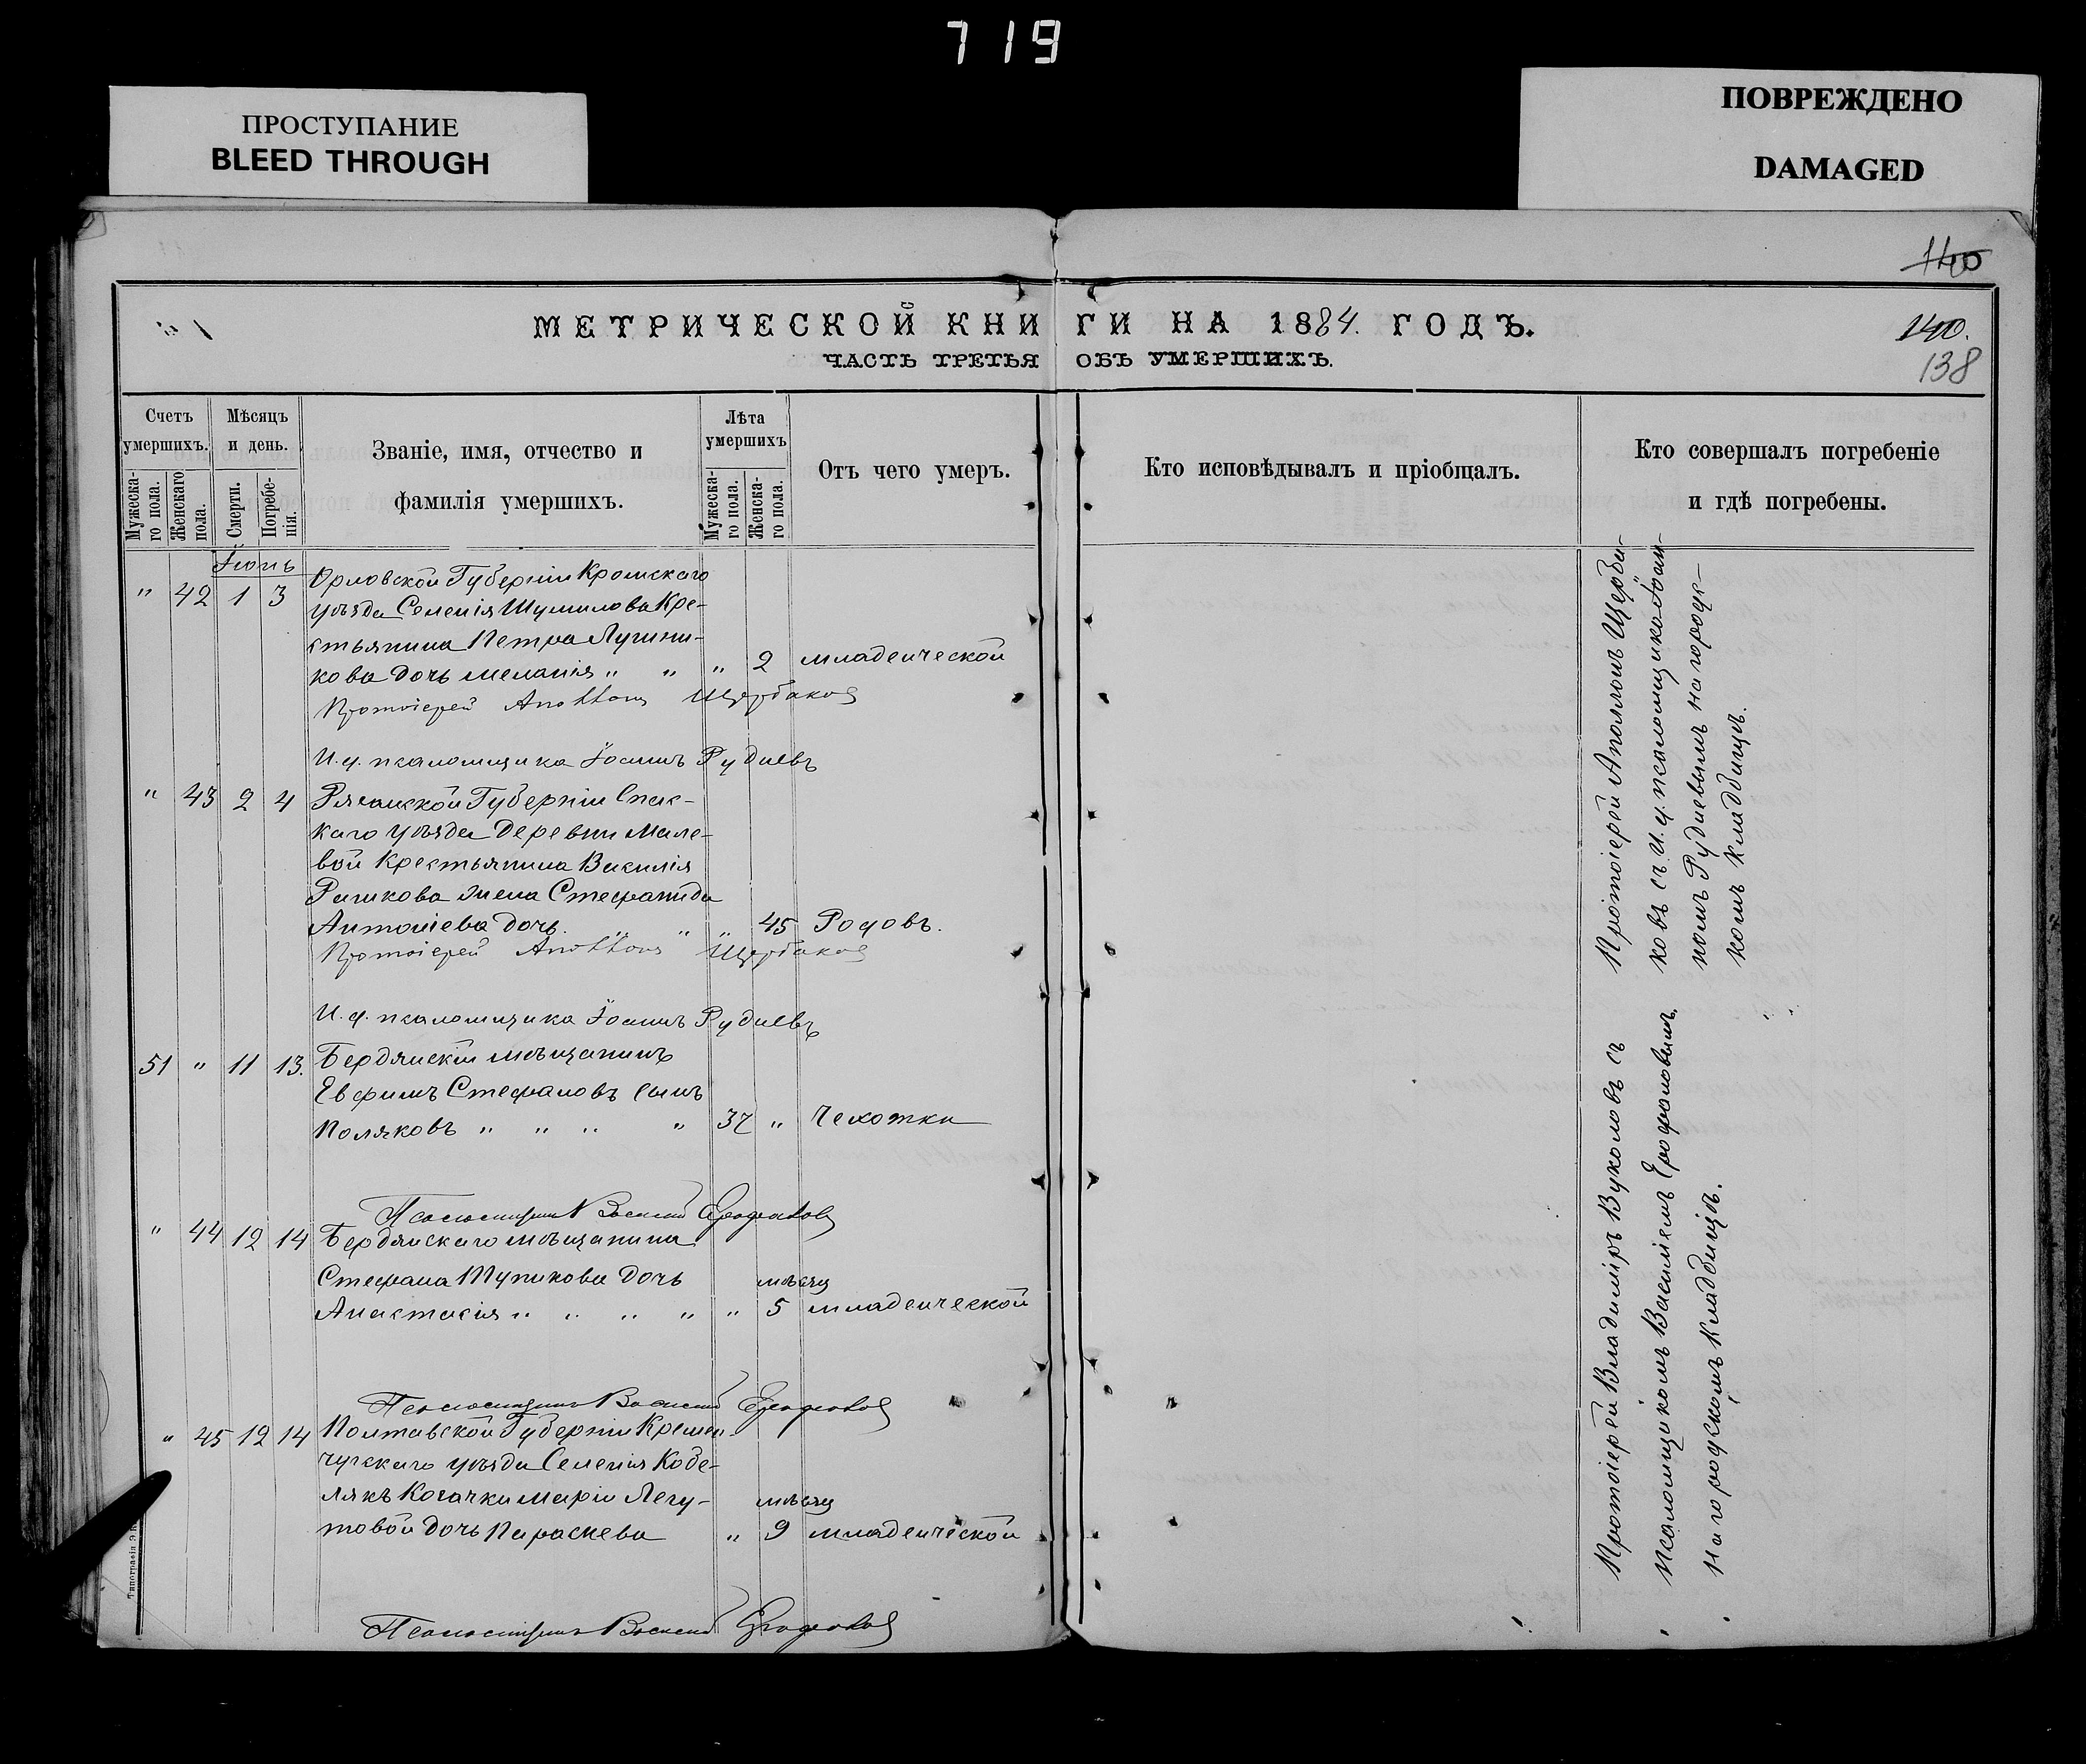 719
ПРОСТУПАНИЕ
BLEED THROUGH
ПОВРЕЖДЕНО
DAMAGED
140
МЕТРИЧЕСКОЙ КНИГИ НА 1884. ГОДЪ.
140.
ЧАСТЬ ТРЕТЬЯ ОБЪ УМЕРШИХЪ.
138
Счетъ умершихъ.
Мужескаго пола.
Женскаго пола.
Мѣсяцъ и день.
Смерти.
Погребенія.
Званіе, имя, отчество и
фамилія умершихъ.
Лѣта умершихъ
Мужескаго пола.
Женскаго пола.
Отъ чего умеръ.
Кто исповѣдывалъ и пріобщалъ.
Кто совершалъ погребеніе
и гдѣ погребены.
Іюнь
" 42 1 3 Орловской Губерніи Кромскаго
уѣзда Селенія Шумилова Кре-
стьянина Петра Лучини-
кова дочь Меланія " " " 2 младенческой
Протоіерей Аполлонъ Щербаковъ
И. д. псаломщика Іоаннъ Рудневъ
" 43 2 4 Рязанской Губерніи Спас-
каго уѣзда Деревни Мале-
вой Крестьянина Василія
Рашкова жена Стефанида
Антоніева дочь. " " " 45 Родовъ.
Протоіерей Аполлонъ Щербаковъ
И. д. псаломщика Іоаннъ Рудневъ
51 " 11 13. Бердянскій мѣщанинъ
Евфимъ Стефановъ сынъ
Поляковъ " " " " 37 " Чахотки
Псаломщикъ Василій Ерофаловъ
" 44 12 14 Бердянскаго мѣщанина
Стефана Тупикова дочь мѣсяц
Анастасія " " " " " 5 младенческой
Псаломщикъ Василій Ерофаловъ
" 45 12 14 Полтавской Губерніи Кремен-
чугскаго уѣзда Селенія Кобе-
лякъ Козачки Маріи Легу-
товой дочь Параскева мѣсяц " 9 младенческой
Псаломщикъ Василій Ерофаловъ
Протоіерей Аполлонъ Щерба-
ковъ съ И. д. псаломщика Іоан-
номъ Рудневымъ на городс-
комъ кладбищѣ.
Протоіерей Владиміръ Вуколовъ съ
псаломщикомъ Василіемъ Ерофаловымъ
на городскомъ кладбищѣ.